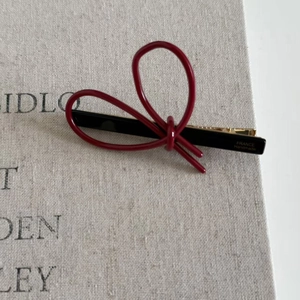 SIDLO
T
DEN
LEY